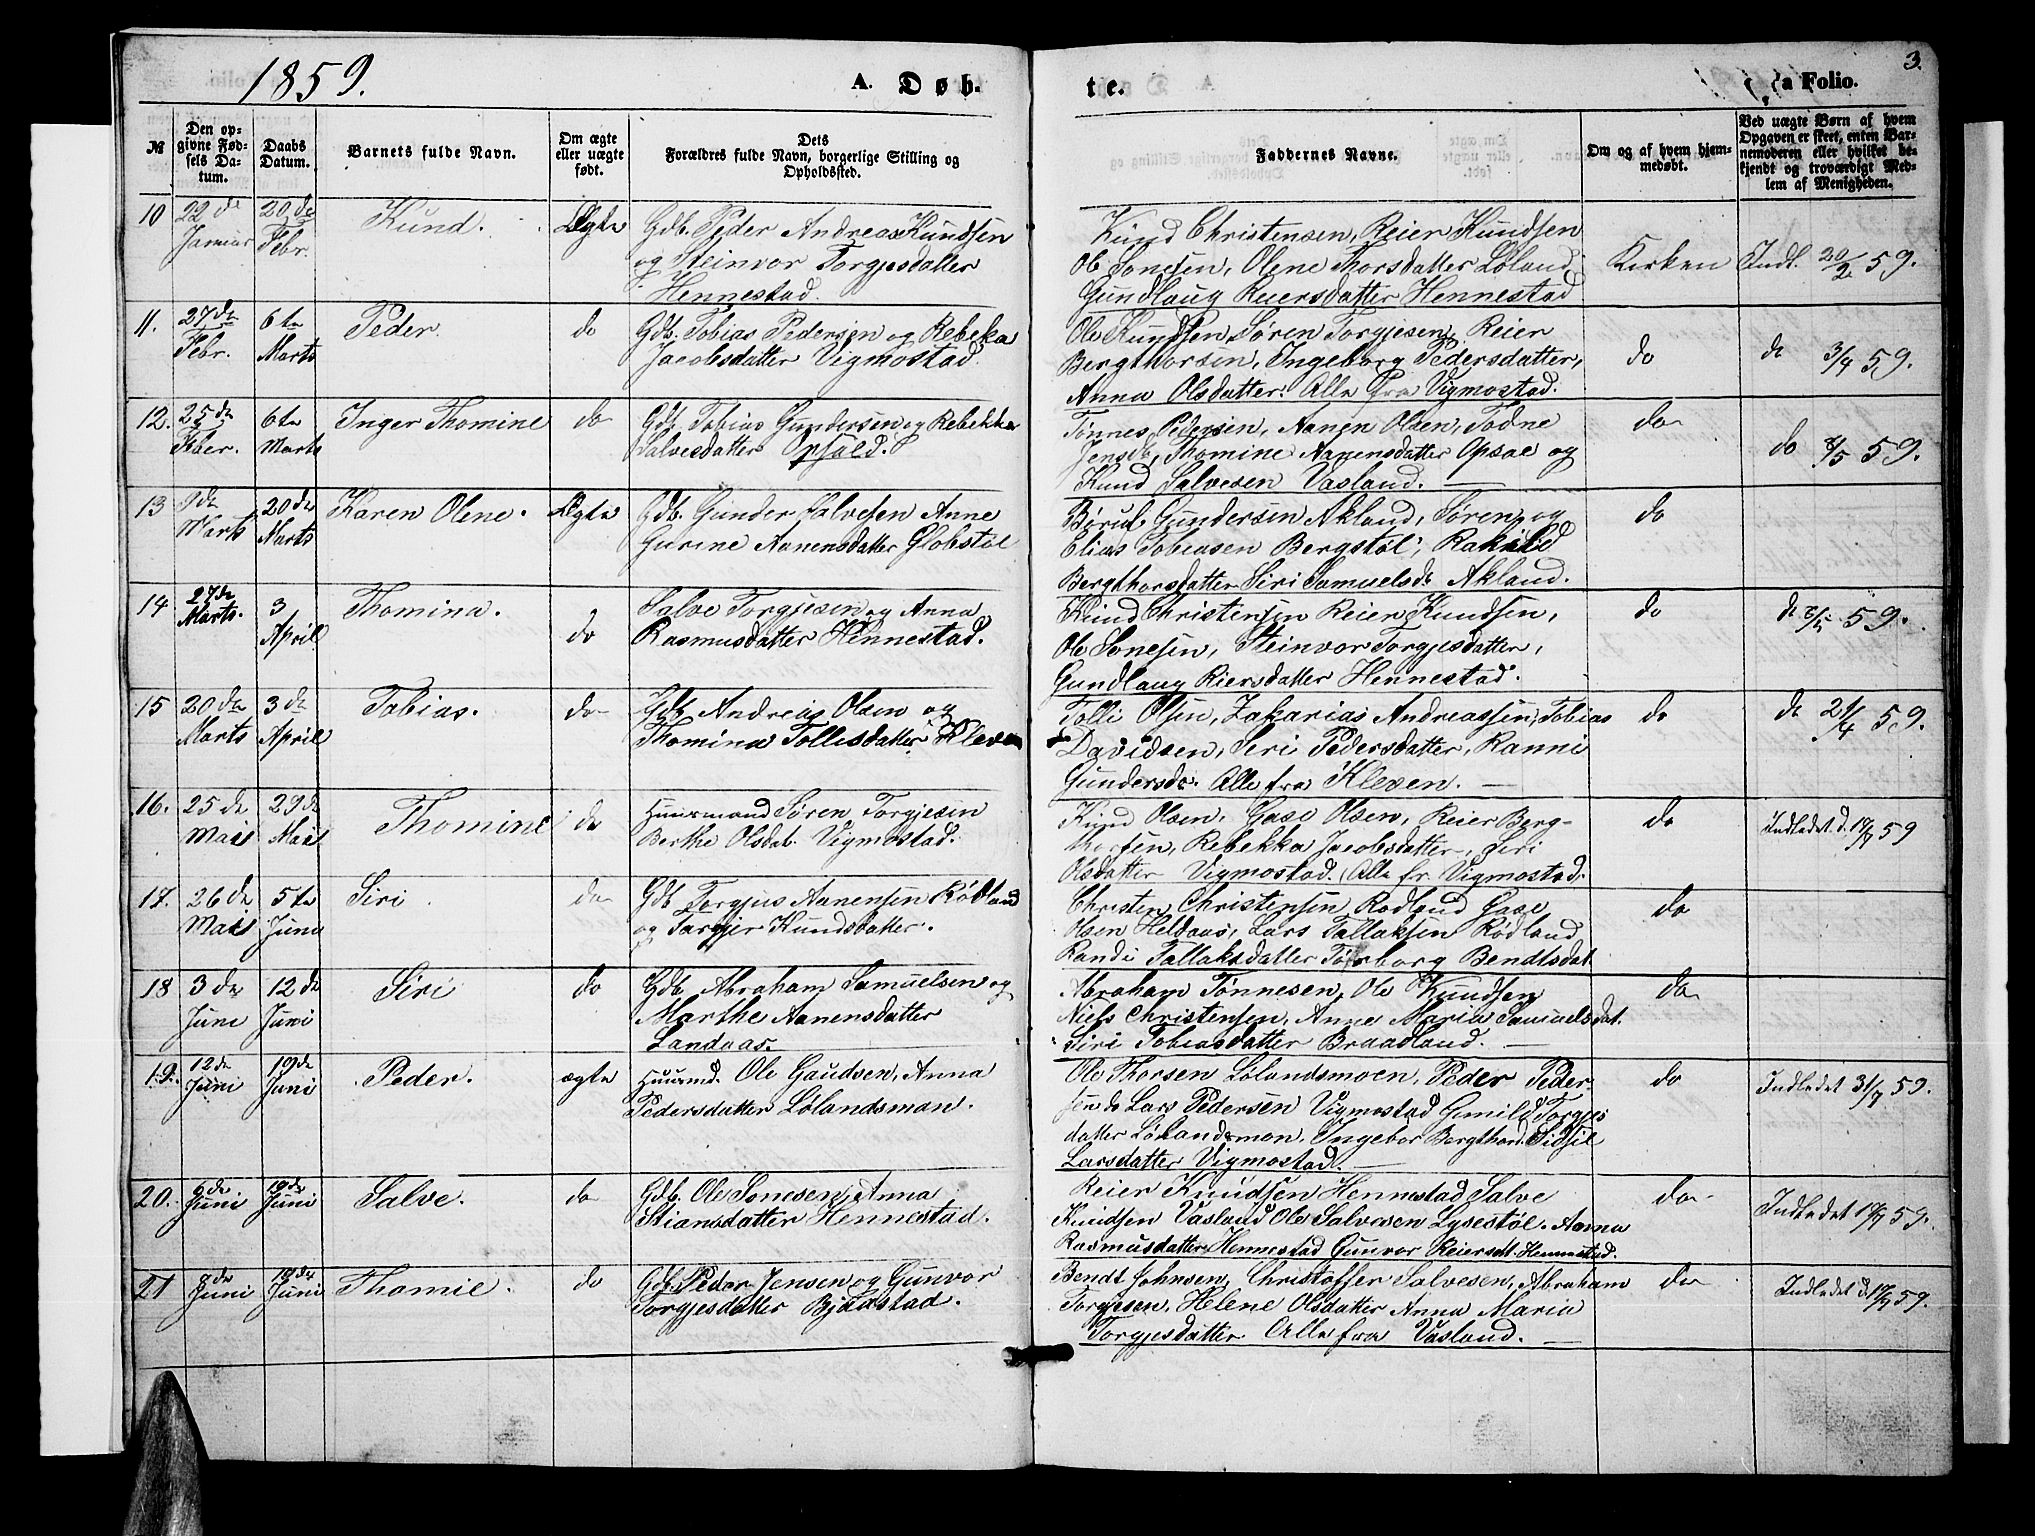 1859.
A. Døb-
te.
a Folio.
3.
№
Den op-
givne Fød-
sels Da-
tum.
Daabs
Datum.
Barnets fulde Navn.
Om ægte
eller uægte
født.
Dets
Forældres fulde Navn, borgerlige Stilling og
Opholdssted.
Faddernes Navne.
Om og af hvem hjem-
medøbt.
Ved uægte Børn af hvem
Opgaven er skeet, enten Bar-
nemoderen eller hvilket be-
kjendt og troværdigt Med-
lem af Menigheden.
10 22de Januar 20de Febr. Knud. Ægte
Gdb. Peder Andreas Knudsen
og Steinvor Torgjesdatter
Hennestad.
Knud Christensen, Reier Knudsen
Ole Sonesen, Olene Thorsdatter Løland
Gundlaug Reiersdatter Hennestad
Kirken Indl. 20/2 59.
11. 27de Febr. 6te Marts Peder. do
Gdb. Tobias Pedersen og Rebeka
Jacobsdatter Vigmostad.
Ole Knudsen, Søren Torgjesen, Reier
Bergthorsen, Ingeborg Pedersdatter,
Anna Olsdatter. Alle fra Vigmostad.
do do 3/4 59.
12. 25de Feber. 6te Marts Inger Thomine do
Gdb. Tobias Gundersen og Rebekka
Salvesdatter Opsald.
Tønnes Pedersen, Aanen Olsen, Todne
Jensd., Thomine Aanensdatter Opsal og
Knud Salvesen Vasland.
do do 8/5 59.
13 9de Marts 20de Marts Karen Oline. Ægte
Gdb. Gunder Salvesen Anne
Gurine Aanensdatter Globstøl
Børuf Gundersen Akland, Søren og
Elias Tobiasen Bergstøl, Rakild
Bergthorsdatter Siri Samuelsd. Akland.
do
14 27de Marts. 3 April Thomina. do
Salve Torgjesen og Anna
Rasmusdatter Hennestad.
Knud Christensen Reier Knudsen,
Ole Sonesen, Steinvor Torgjesdatter,
Gundlaug Riersdatter Hennestad.
do do 8/5 59.
15 20de Marts 3de April Tobias. do
Gdb. Andreas Olsen og
Thomina Tollisdatter Kleven
Tolli Olsen, Zakarias Andreassen, Tobias
Davidsen, Seri Pedersdatter, Ranni
Gundersd. Alle fra Kleven.
do do 24/4 59.
16. 25de Mais 29de Mais Thomine do
Huusmand Søren Torgjesen
Berthe Olsdat. Vigmostad.
Knud Olsen, Gase Olsen, Reier Berg-
thorsen, Rebekka Jacobsdatter, Siri
Olsdatter Vigmostad. Alle fr. Vigmostad.
do Indledet d. 59
17. 26de Mais 5te Juni Siri do
Gdb Torgjus Aanensen Rødland
og Targjer Knudsdatter.
Christen Christensen Rødland Gase
Olsen Heldaas, Lars Tallaksen Rødland
Randi Tallaksdatter Torborg Bendtsdat
do
18 3de Juni 12de Juni Siri do
Gdb. Abraham Samuelsen og
Marthe Aanensdatter
Landaas.
Abraham Tønnesen, Ole Knudsen
Niels Christensen, Anne Maria Samuelsdat.
Siri Tobiasdatter Braadland.
do
19. 12de Juni 19de Juni Peder. ægte
Huusmd. Ole Gaudsen, Anna
Pedersdatter Lølandsmon.
Ole Thorsen Lølandsmoen, Peder Peder-
sen do Lars Pedersen Vigmostad Gunild Torgjes
datter Lølandsmon, Ingebor Bergthorsd. Sidsil
Larsdatter Vigmostad.
do Indledet 31/7 59.
20. 6de Juni 19de Juni Salve. do
Gdb. Ole Sonesen, Anna
Stiansdatter Hennestad.
Reier Knudsen Hennestad Salve
Knudsen Vasland Ole Salvesen Lysestøl. Anna
Rasmusdatter Hennestad Gunvor Reiersdt. Hennestad.
do Indledet 59.
21 8de Juni 19de Juni Thomie. do
Gdb. Peder Jensen og Gunvor
Torgjesdatter Bjaastad.
Bendt Johnsen, Christoffer Salvesen, Abraham
Torgjesen, Helene Olsdatter Anna Maria
Torgjesdatter Alle fra Vasland.
do Indledet d. 59.